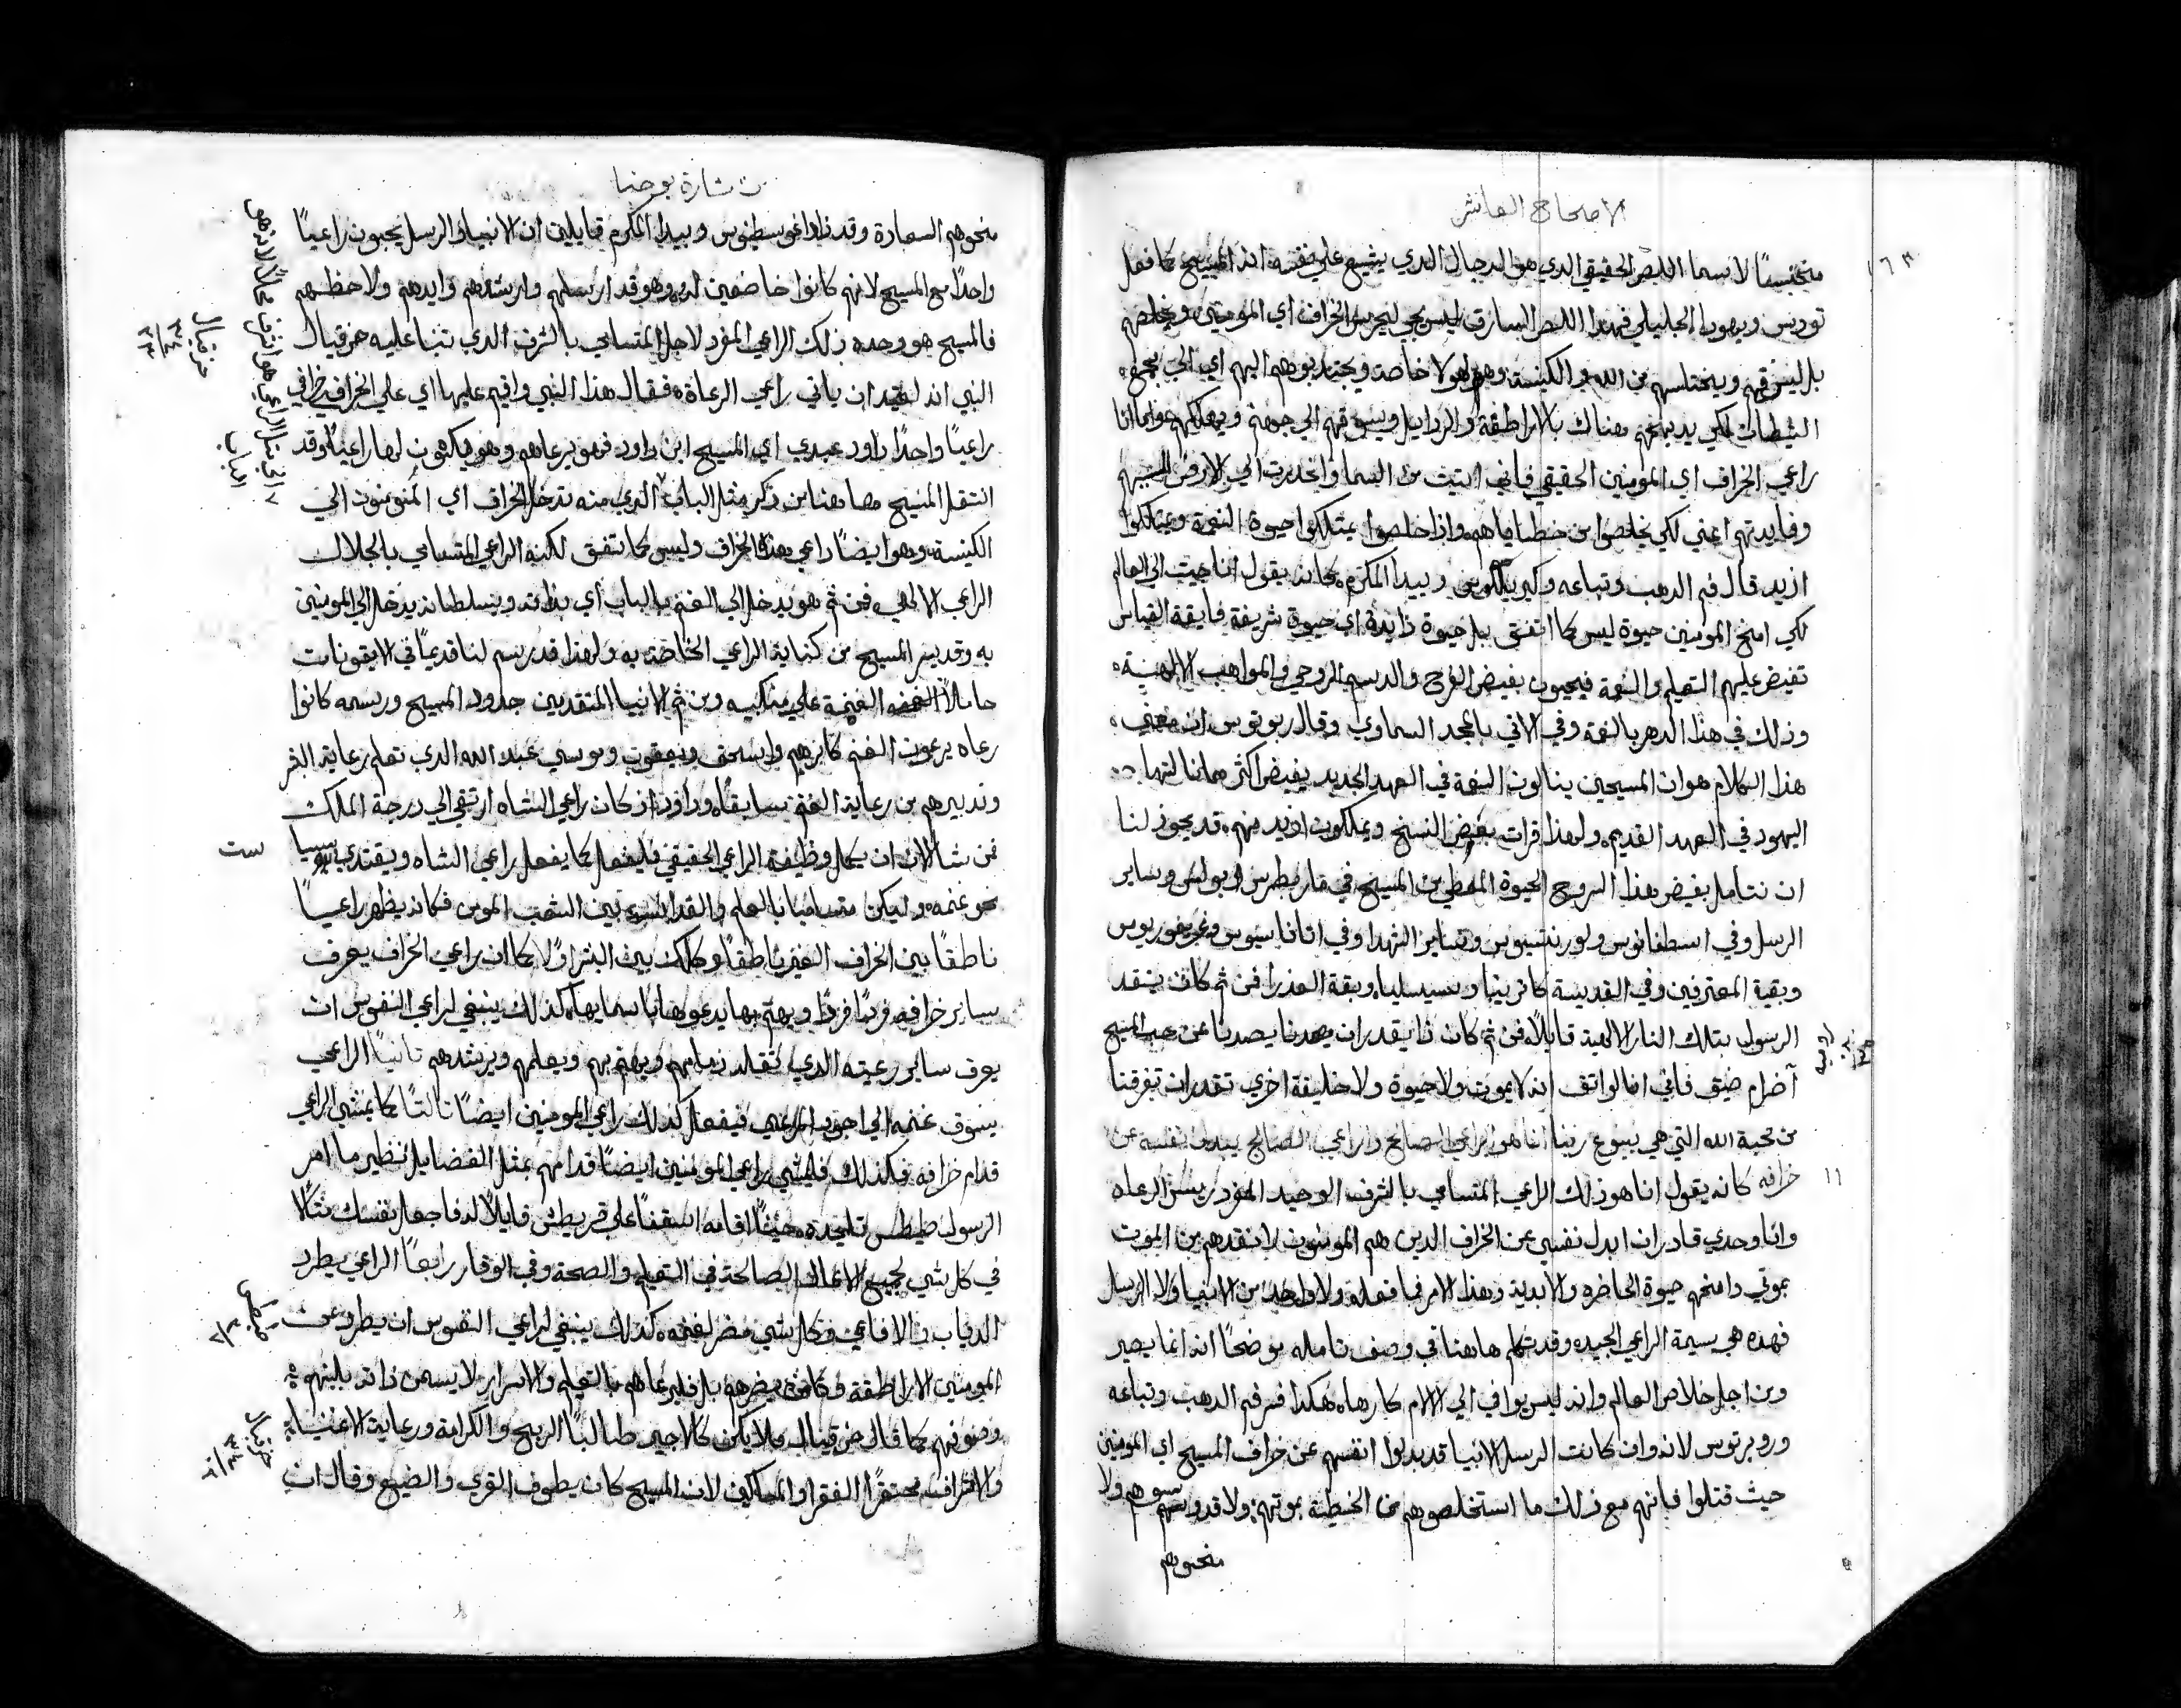 الاصحاح العاشر
١٦٣
مختبسًا لاسما اللص الحقيقي الدي هو الدجال الدي يشيع علي نفسه انه المسيح كما فعل
توديس ويهودا الجليلي فهذا اللص السارق ليس يجي ليحرس الخراف اي المومنين ويخلصهم
بل ليسرقهم ويختلسهم من الله والكنيسة وهم لهولا خاصة ويجتذبوهم اليهم اي الي جحيم
الشيطان لكي يديحهم هناك بالاراطقة والردايل ويسوقهم الي جهنم ويهلكهم واما انا
راعي الخراف اي المومنين الحقيقي فاني اتيت من السما وانحدرت الي الارض لاجلهم
وفايدتهم اعني لكي يخلصوا من خطاياهم واذا خلصوا يمتلكوا حيوة النعمة ويمتلكوا
ازيد قال فم الدهب وتباعه وكيرللوس وبيدا المكرم كانه يقول انا جيت الي العالم
لكي امنح المومنين حيوة ليس كما اتفق بل حيوة زايدة اي حيوة شريفة فايقة القياس
تفيض عليهم التعليم والنعمة فيحيون بفيض الفرح والدسم الروحي والمواهب الالهية
وذلك في هذا الدهر بالنعمة وفي الاتي بالمجد السماوي وقال ربوتوس ان معني
هذا الكلام هو ان المسيحين ينالون النعمة في العهد الجديد بفيض اكثر مما نالتها
اليهود في العهد القديم ولهذا قرات بعض النسخ ويملكون ازيد منهم قد يجوز لنا
ان نتامل بفيض هذا الروح الحيوة المعطي من المسيح في مار بطرس وبولس وساير
الرسل وفي اسطفانوس ولورنتسيوس وساير الشهدا وفي اتاناسيوس وغريغوريوس
وبقية المعترفين وفي القديسة كاترينا وسيسيليا وبقة العذرا فمن ثم كان ينقد
الرسول بتلك النار الالهية قايلًا فمن ثم كان ذا يقدر ان يصدنا عن حب المسيح
آضرام ضيق فاني انا لواثق انه لا يموت ولا حيوة ولا خليقة اخري تقدر ان تفرقنا
من محبة الله التي هي بيسوع ربنا انا هو الراعي الصالح والراعي الصالح يبدل نفسه عن
١١
خرافه كانه يقول انا هو ذلك الراعي المتسامي بالشرف الوحيد المفرد ريس الرعاه
وانا وحدي قادر ان ابدل نفسي عن الخراف الدين هم المومنون لانقدهم من الموت
بموتي وامنحهم حيوة الحاضره والابدية وهذا الامر فما فعله ولا واحد من الانبيا ولا الرسل
فهذه هي سيمة الراعي الجيد وقد تكلم هاهنا في وصف تامله موضحًا انه انما يصير
ومن اجل خلاص العالم وانه ليس يوافي الي الالام كارهاه هكذا فسر فم الدهب وتباعه
وروبرتوس لانه وان كانت الرسل والانبيا قد بدلوا انفسهم عن خراف المسيح اي المومنين
حيث قتلوا فانهم مع ذلك ما استخلصوهم من الخطية بموتهم ولا قدوسهم ولا
منحوهم
بشارة يوحنا
منحوهم السعادة وقد زاد اغوسطينوس وبيدا المكرم قايلين ان الانبيا والرسل يحبون راعيًا
واحدًا مع المسيح لانهم كانوا خاضعين لديه وهو قد ارسلهم وارشدهم وايدهم ولاحظهم
فالمسيح هو وحده ذلك الراعي المفرد لاجل المتسامي بالشرف الدي تنبا عليه حزقيال
حزقيال
٣٤
٢٣
النبي انه لعتيد ان ياتي راعي الرعاة فقال هذا النبي واقيم عليها اي علي الخراف خرافي
راعيًا واحدًا داود عبدي اي المسيح ابن داود فهو يرعاهم وهو يكون لها راعيًا وقد
انتقل المسيح هاهنا من ذكر مثل الباب الدي منه تدخل الخراف اي المومنون الي
الكنيسة وهو ايضًا راعي هذه الخراف وليس كما تتفق لكنه الراعي المتسامي بالجلالك
الراعي الالهي فمن ثم هو يدخل الي الغنم بالباب اي بذاته وبسلطانه يدخل الي المومنين
به وقد يسر المسيح من كناية الراعي الخاصة به ولهذا قد رسم لنا قديمًا في الايقونات
حاملاً الغنمة علي منكبيه ومن ثم الانبيا المتقدمين جدود المسيح ورسمه كانوا
رعاه يرعون الغنم كابرهيم واسحق ويعقوب وموسي عبد الله الدي تعلم رعاية البشر
وتدبيرهم من رعاية الغنم سابقًا وداود اذ كان راعي الشاه ارتقي الي درجة الملك
فمن شا الان ان يكمل وظيفة الراعي الحقيقي فليفعل كما يفعل راعي الشاه ويقتدي
نحو غنمه وليكن متساميًا بالعلم والقداسة بين الشعب المومن فكانه يظهر راعيًا
ناطقًا بين الخراف الغير ناطقة وكملك بين البشر اولًا كما ان راعي الخراف يعرف
ساير خرافه فردًا فردًا ويهتم بها يدعوها باسمايها كذلك ينبغي لراعي النفوس ان
يعرف ساير رعيته الدي تقلد زمامهم ويهتم بهم ويعلمهم ويرشدهم ثانيًا الراعي
يسوق غنمه الي اجود المراعي فيفعل كذلك راعي المومنين ايضًا ثالثًا كما يمشي الراعي
قدام خرافه فكذلك فليمشي راعي المومنين ايضًا قدامهم بمثل الفضايل نظير ما امر
الرسول طيطس تلميذه حيثما اقامه اسقفًا علي قريطش قايلًا له فاجعل نفسك مثالًا
في كل شي لجميع الاعمال الصالحة في التعليم والصحة وفي الوقار رابعًا الراعي يطرد
الدياب والافاعي وكل شي مضر لغنمه كذلك ينبغي لراعي النفوس ان يطرد عن
المومنين الاراطقة وكلمن يضرهم بل فليرعاهم بالتعليم والاسرار لا يسمن ذاته بلبنهم
وصوفهم كما قال حزقيال فلا يكن كالاجير طالبًا الربح والكرامة ورعاية الاغنيا
حزقيال
والاشراف محتقرًا الفقرا والمساكين لان المسيح كان يطوف القري والضيع وقال ان